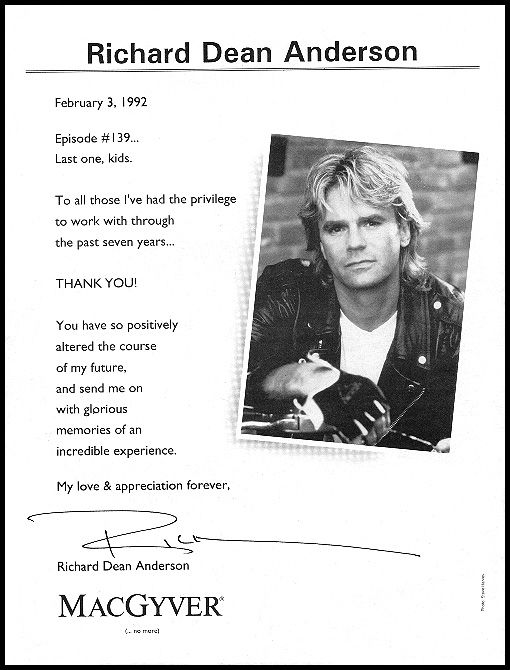 Richard Dean Anderson
February 3, 1992
Episode #139...
Last one, kids.
To all those I've had the privilege
to work with through
the past seven years...
THANK YOU!
You have so positively
altered the course
of my future,
and send me on
with glorious
memories of an
incredible experience.
My love & appreciation forever,
Rick
Richard Dean Anderson
MACGYVER®
(... no more)